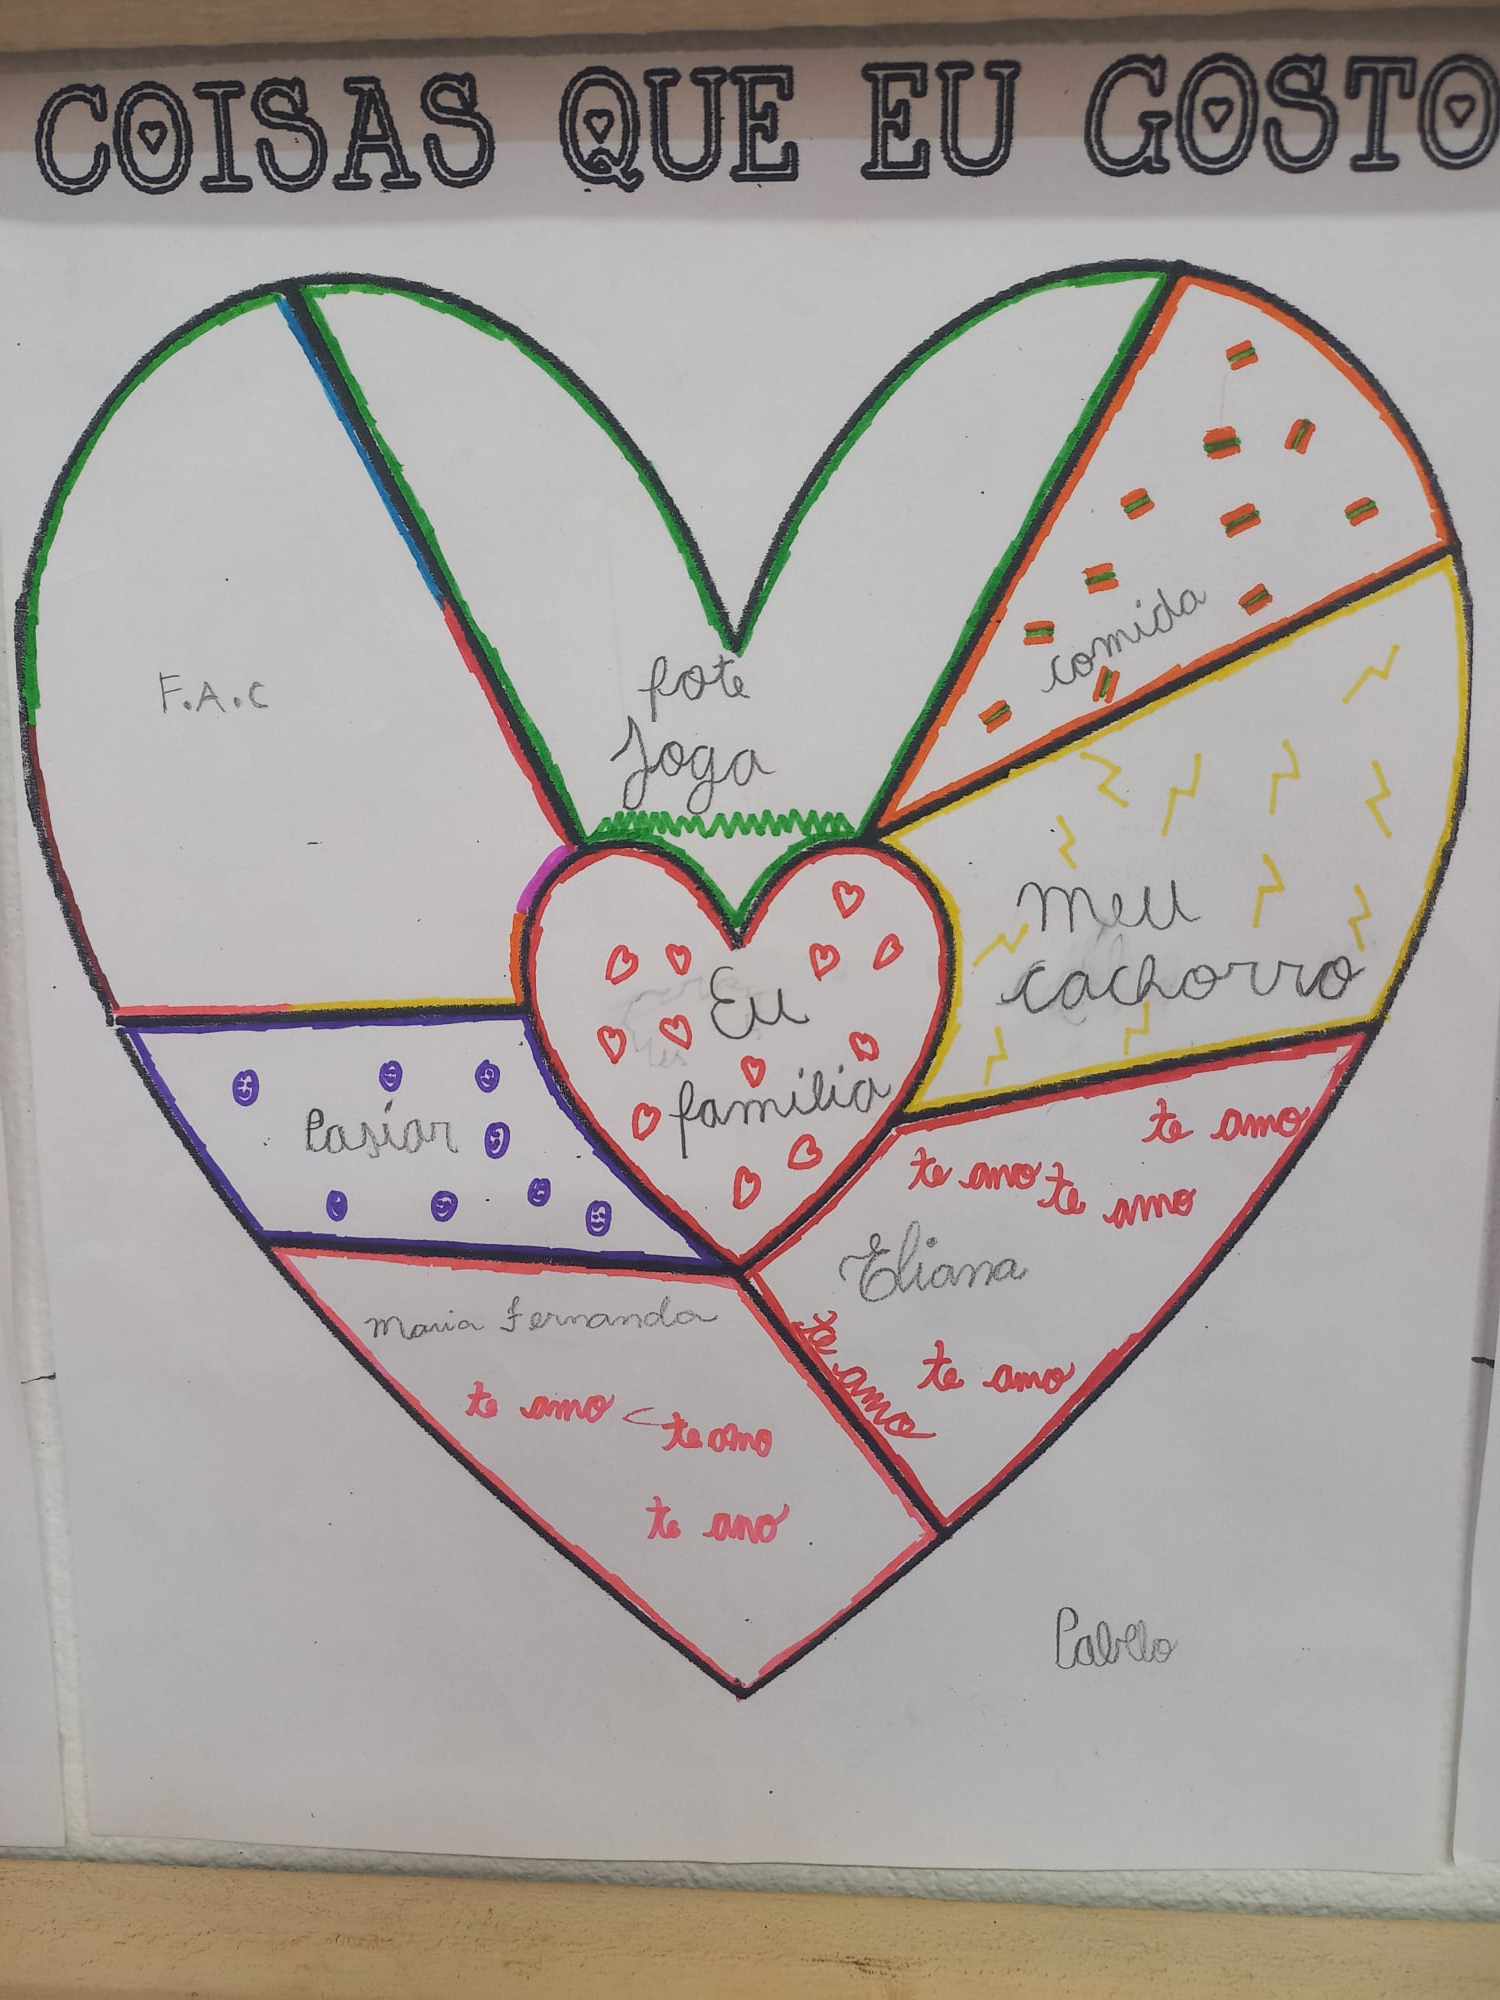 COISAS QUE EU GOSTO
F.A.C
fote
Joga
comida
meu
cachorro
Eu
familia
Pasiar
te amo
te amo te amo
Eliana
te amo
te amo
Maria Fernanda
te amo
te amo
te amo
Pabllo